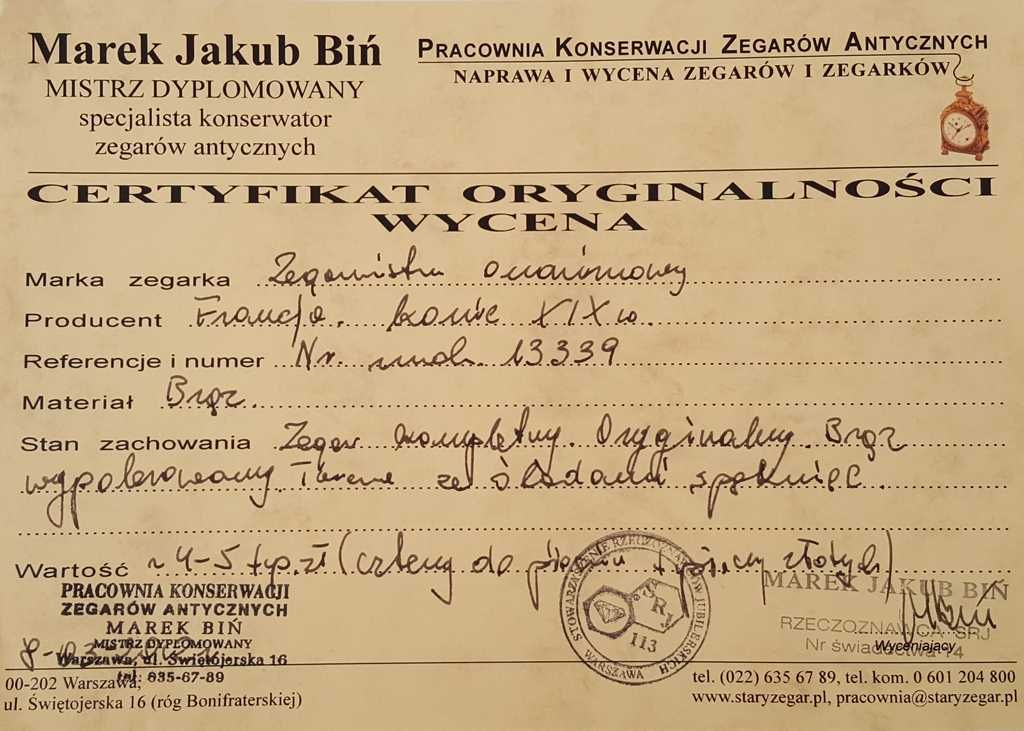 Marek Jakub Biń
MISTRZ DYPLOMOWANY
specjalista konserwator
zegarów antycznych
PRACOWNIA KONSERWACJI ZEGARÓW ANTYCZNYCH
NAPRAWA I WYCENA ZEGARÓW I ZEGARKÓW
CERTYFIKAT ORYGINALNOŚCI
WYCENA
Marka zegarka
Producent Francja. koniec XIX w.
Referencje i numer Nr. 13339
Materiał Brąz.
Stan zachowania Zegar kompletny. Oryginalny. Brąz
wypolerowany. ze śladami spęknięć.
Wartość ~ 4-5 tyś. zł (cztery do pięciu tysięcy złotych)
PRACOWNIA KONSERWACJI
ZEGARÓW ANTYCZNYCH
MAREK BIŃ
MISTRZ DYPLOMOWANY
Warszawa, ul. Świętojerska 16
tel. 635-67-89
STOWARZYSZENIE RZECZOZNAWCÓW JUBILERSKICH
SRJ
113
WARSZAWA
MAREK JAKUB BIŃ
RZECZOZNAWCA SRJ
Nr świadectwa 14
Wyceniający
00-202 Warszawa,
ul. Świętojerska 16 (róg Bonifraterskiej)
tel. (022) 635 67 89, tel. kom. 0 601 204 800
www.staryzegar.pl, pracownia@staryzegar.pl